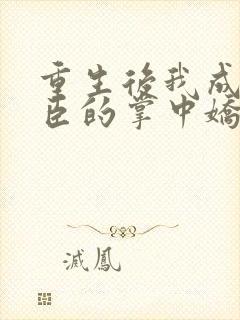 重生後我成
臣的掌中嬌
滅鳳